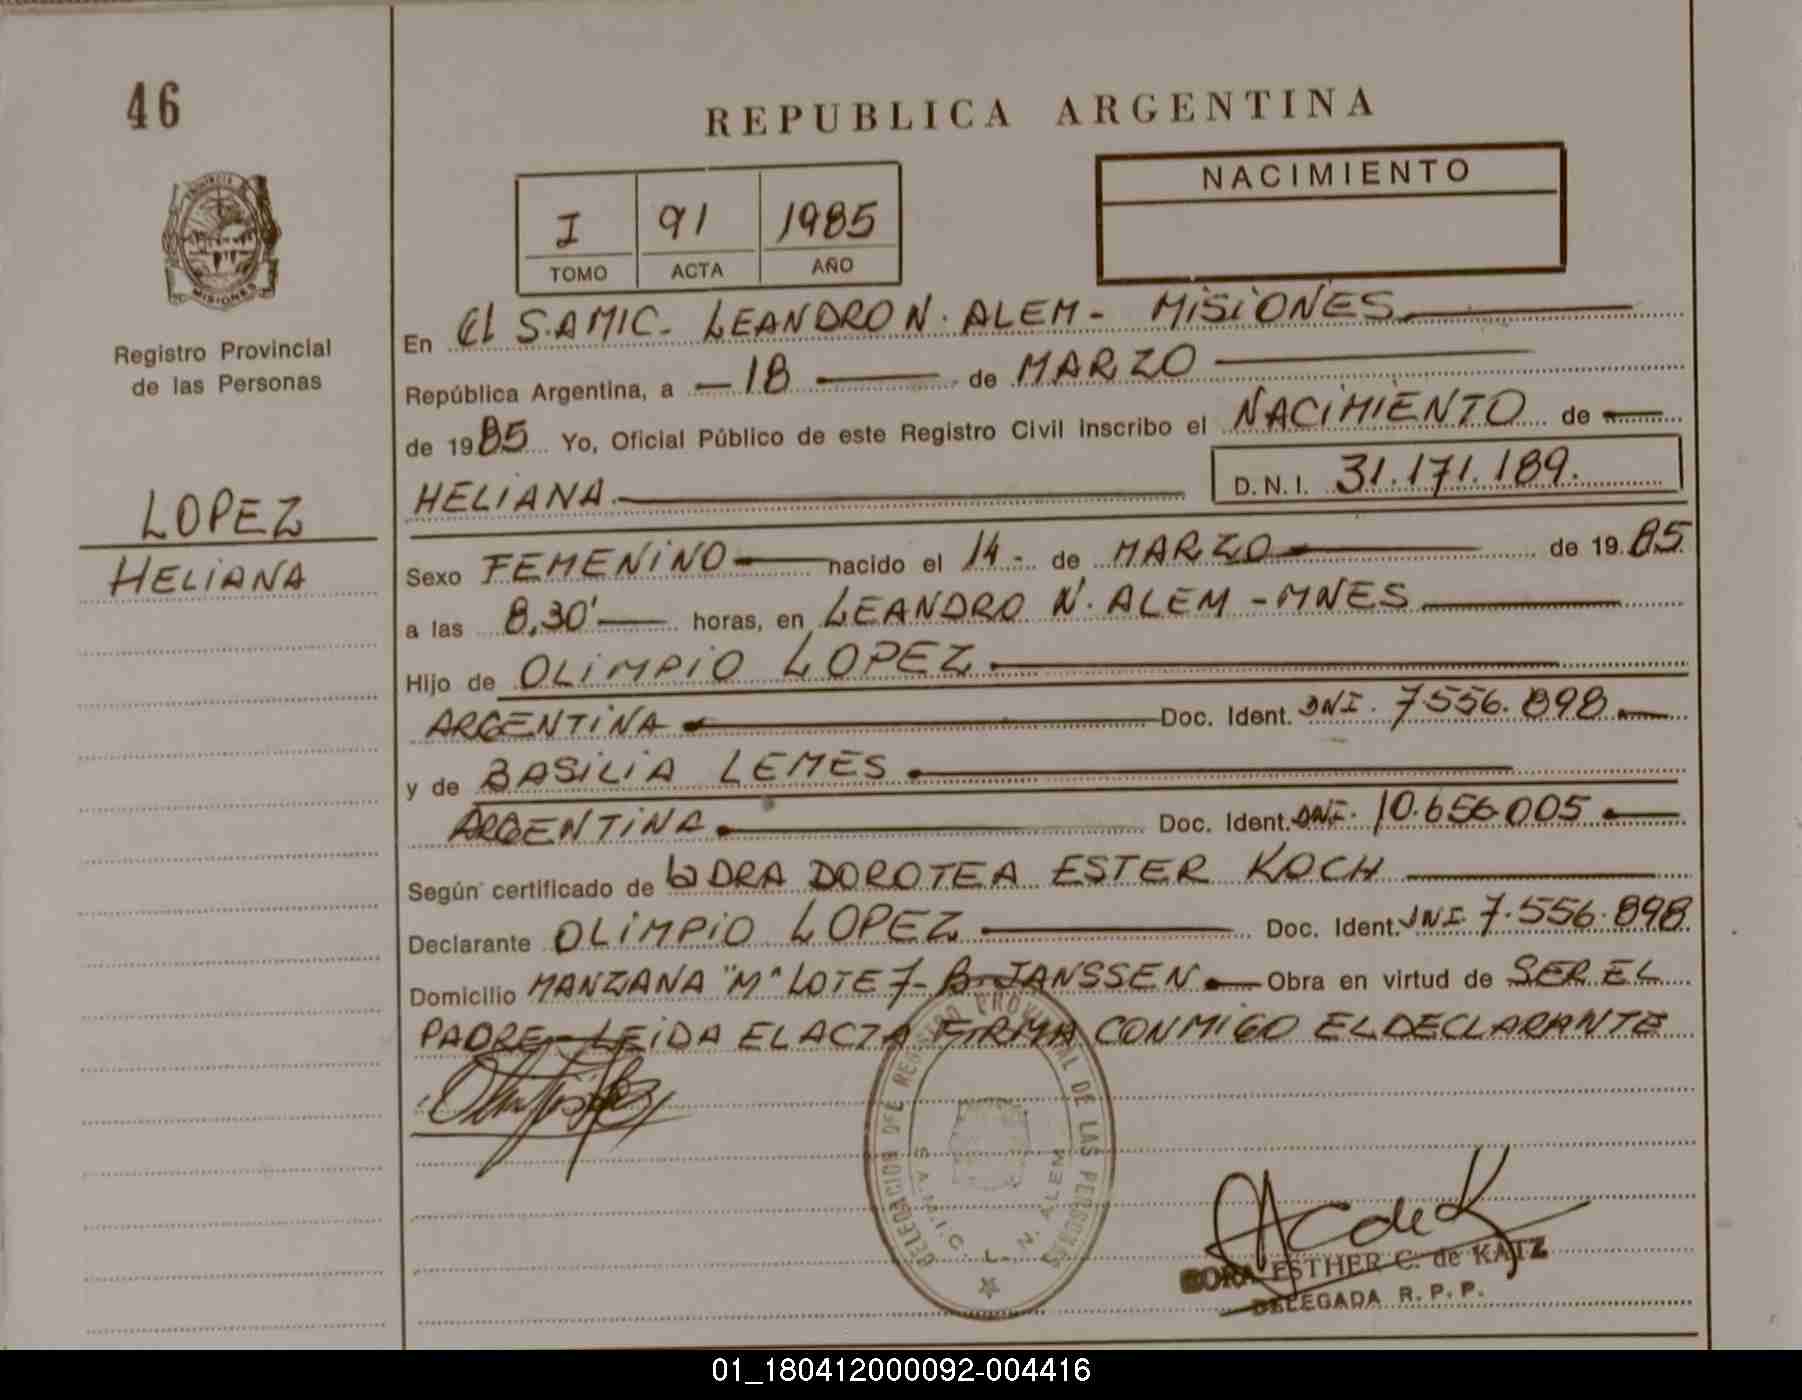 46
REPUBLICA ARGENTINA
NACIMIENTO
I 91 1985
TOMO ACTA AÑO
PROVINCIA D
MISIONES
Registro Provincial
de las Personas
LOPEZ
HELIANA
En El S.A.M.I.C. LEANDRO N. ALEM - MISIONES
República Argentina, a 18 de MARZO
de 1985 Yo, Oficial Público de este Registro Civil Inscribo el NACIMIENTO de
HELIANA D.N.I. 31.171.189.
Sexo FEMENINO nacido el 14 - de MARZO de 1985.
a las 8,30' horas, en LEANDRO N. ALEM - MNES
Hijo de OLIMPIO LOPEZ
ARGENTINA Doc. Ident. DNI. 7556.898
y de BASILIA LEMES
ARGENTINA Doc. Ident. DNI. 10.656.005
Según certificado de la DRA DOROTEA ESTER KOCH
Declarante OLIMPIO LOPEZ Doc. Ident. DNI 7.556.898
Domicilio MANZANA "M" LOTE 7 - B. JANSSEN Obra en virtud de SER EL
PADRE - LEIDA EL ACTA FIRMA CONMIGO EL DECLARANTE
DELEGACION DEL REGISTRO PROVINCIAL DE LAS PERSONAS
S.A.M.I.C. L. N. ALEM
DORA ESTHER C. de KATZ
DELEGADA R. P. P.
01_180412000092-004416